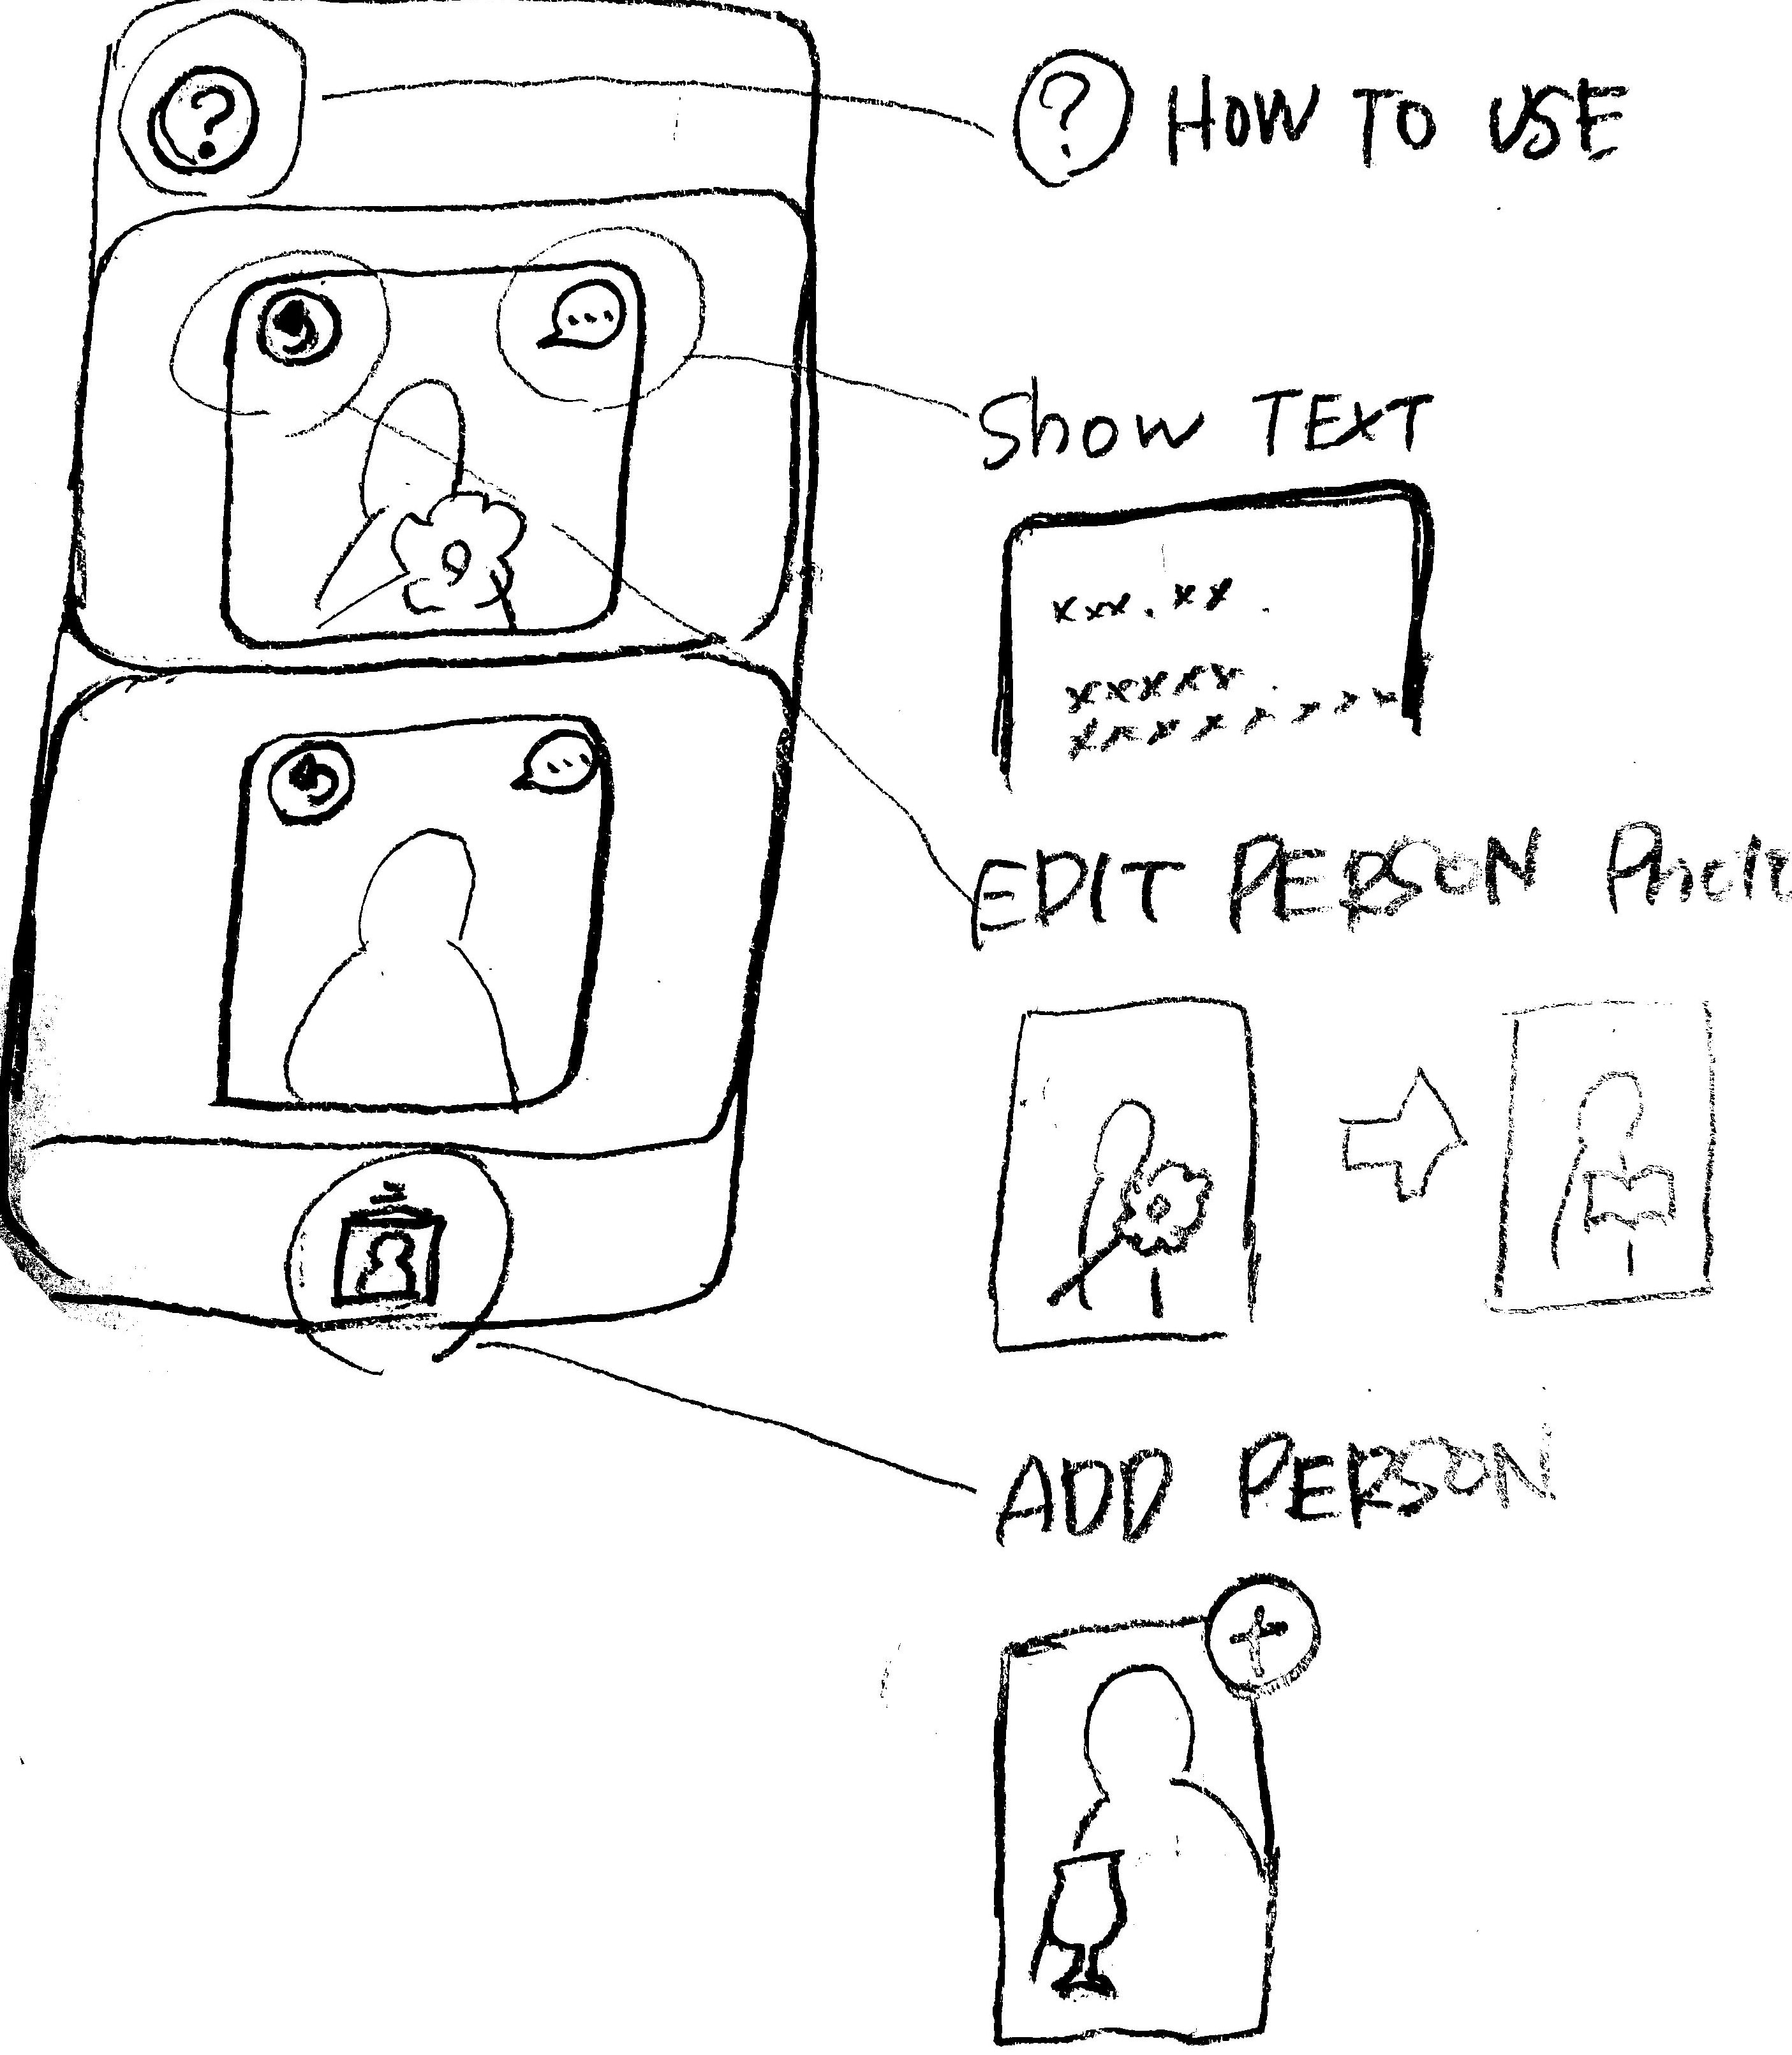 ?
? HOW TO USE
Show TEXT
xxx.xx.
xxxxx.
xxxxxxxx
EDIT PERSON Photo
ADD PERSON
+